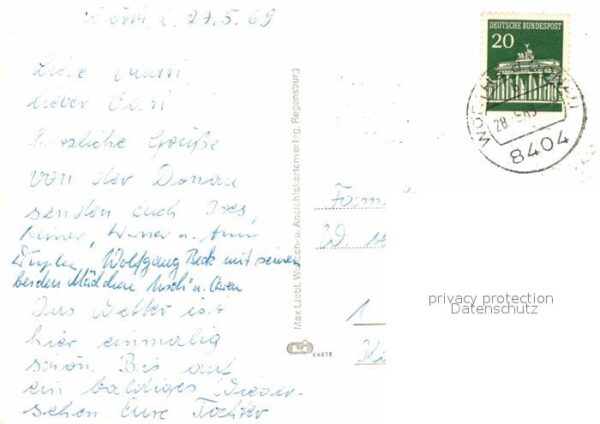 Wörth, 27.5.69
Liebe Mutti
lieber Vati
herzliche Grüße
von der Donau
senden euch Ines,
Werner u. Anni
Wolfgang Beck mit seinen
beiden Mädchen Usch' u.
Das Wetter ist
hier einmalig
schön. Bis auf
ein baldiges Wieder-
sehen Eure Tochter
Max Liebl, Wunsch- u. Ansichtskartenverlag, Regensburg
KARTE
DEUTSCHE BUNDESPOST
20
28.-5.69
8404
Fam
W.
1
privacy protection
Datenschutz